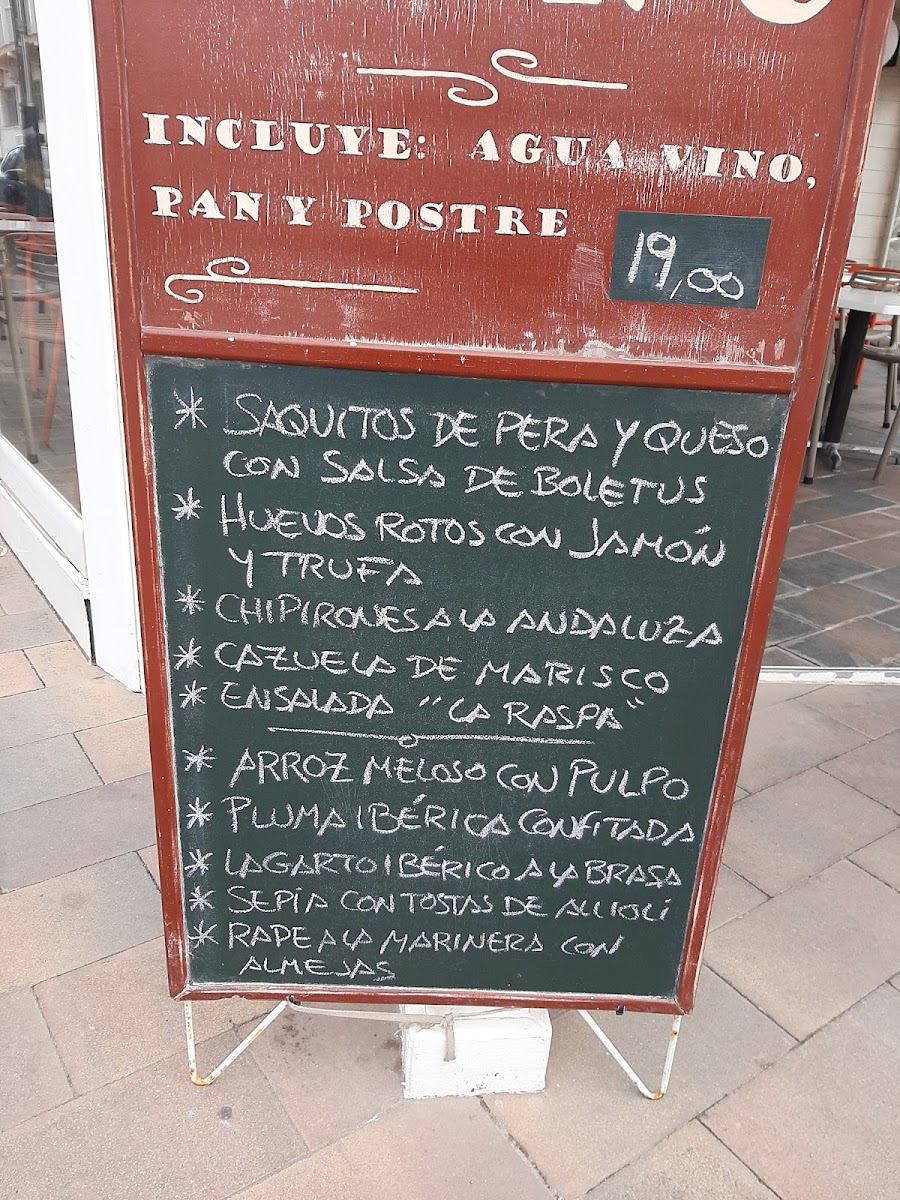 INCLUYE: AGUA VINO,
PAN Y POSTRE
19,00
* SAQUITOS DE PERA Y QUESO
CON SALSA DE BOLETUS
* HUEVOS ROTOS CON JAMÓN
Y TRUFA
* CHIPIRONES A LA ANDALUZA
* CAZUELA DE MARISCO
* ENSALADA "LA RASPA"
* ARROZ MELOSO CON PULPO
* PLUMA IBÉRICA CONFITADA
* LAGARTO IBÉRICO A LA BRASA
* SEPIA CON TOSTAS DE ALLIOLI
* RAPE A LA MARINERA CON
ALMEJAS